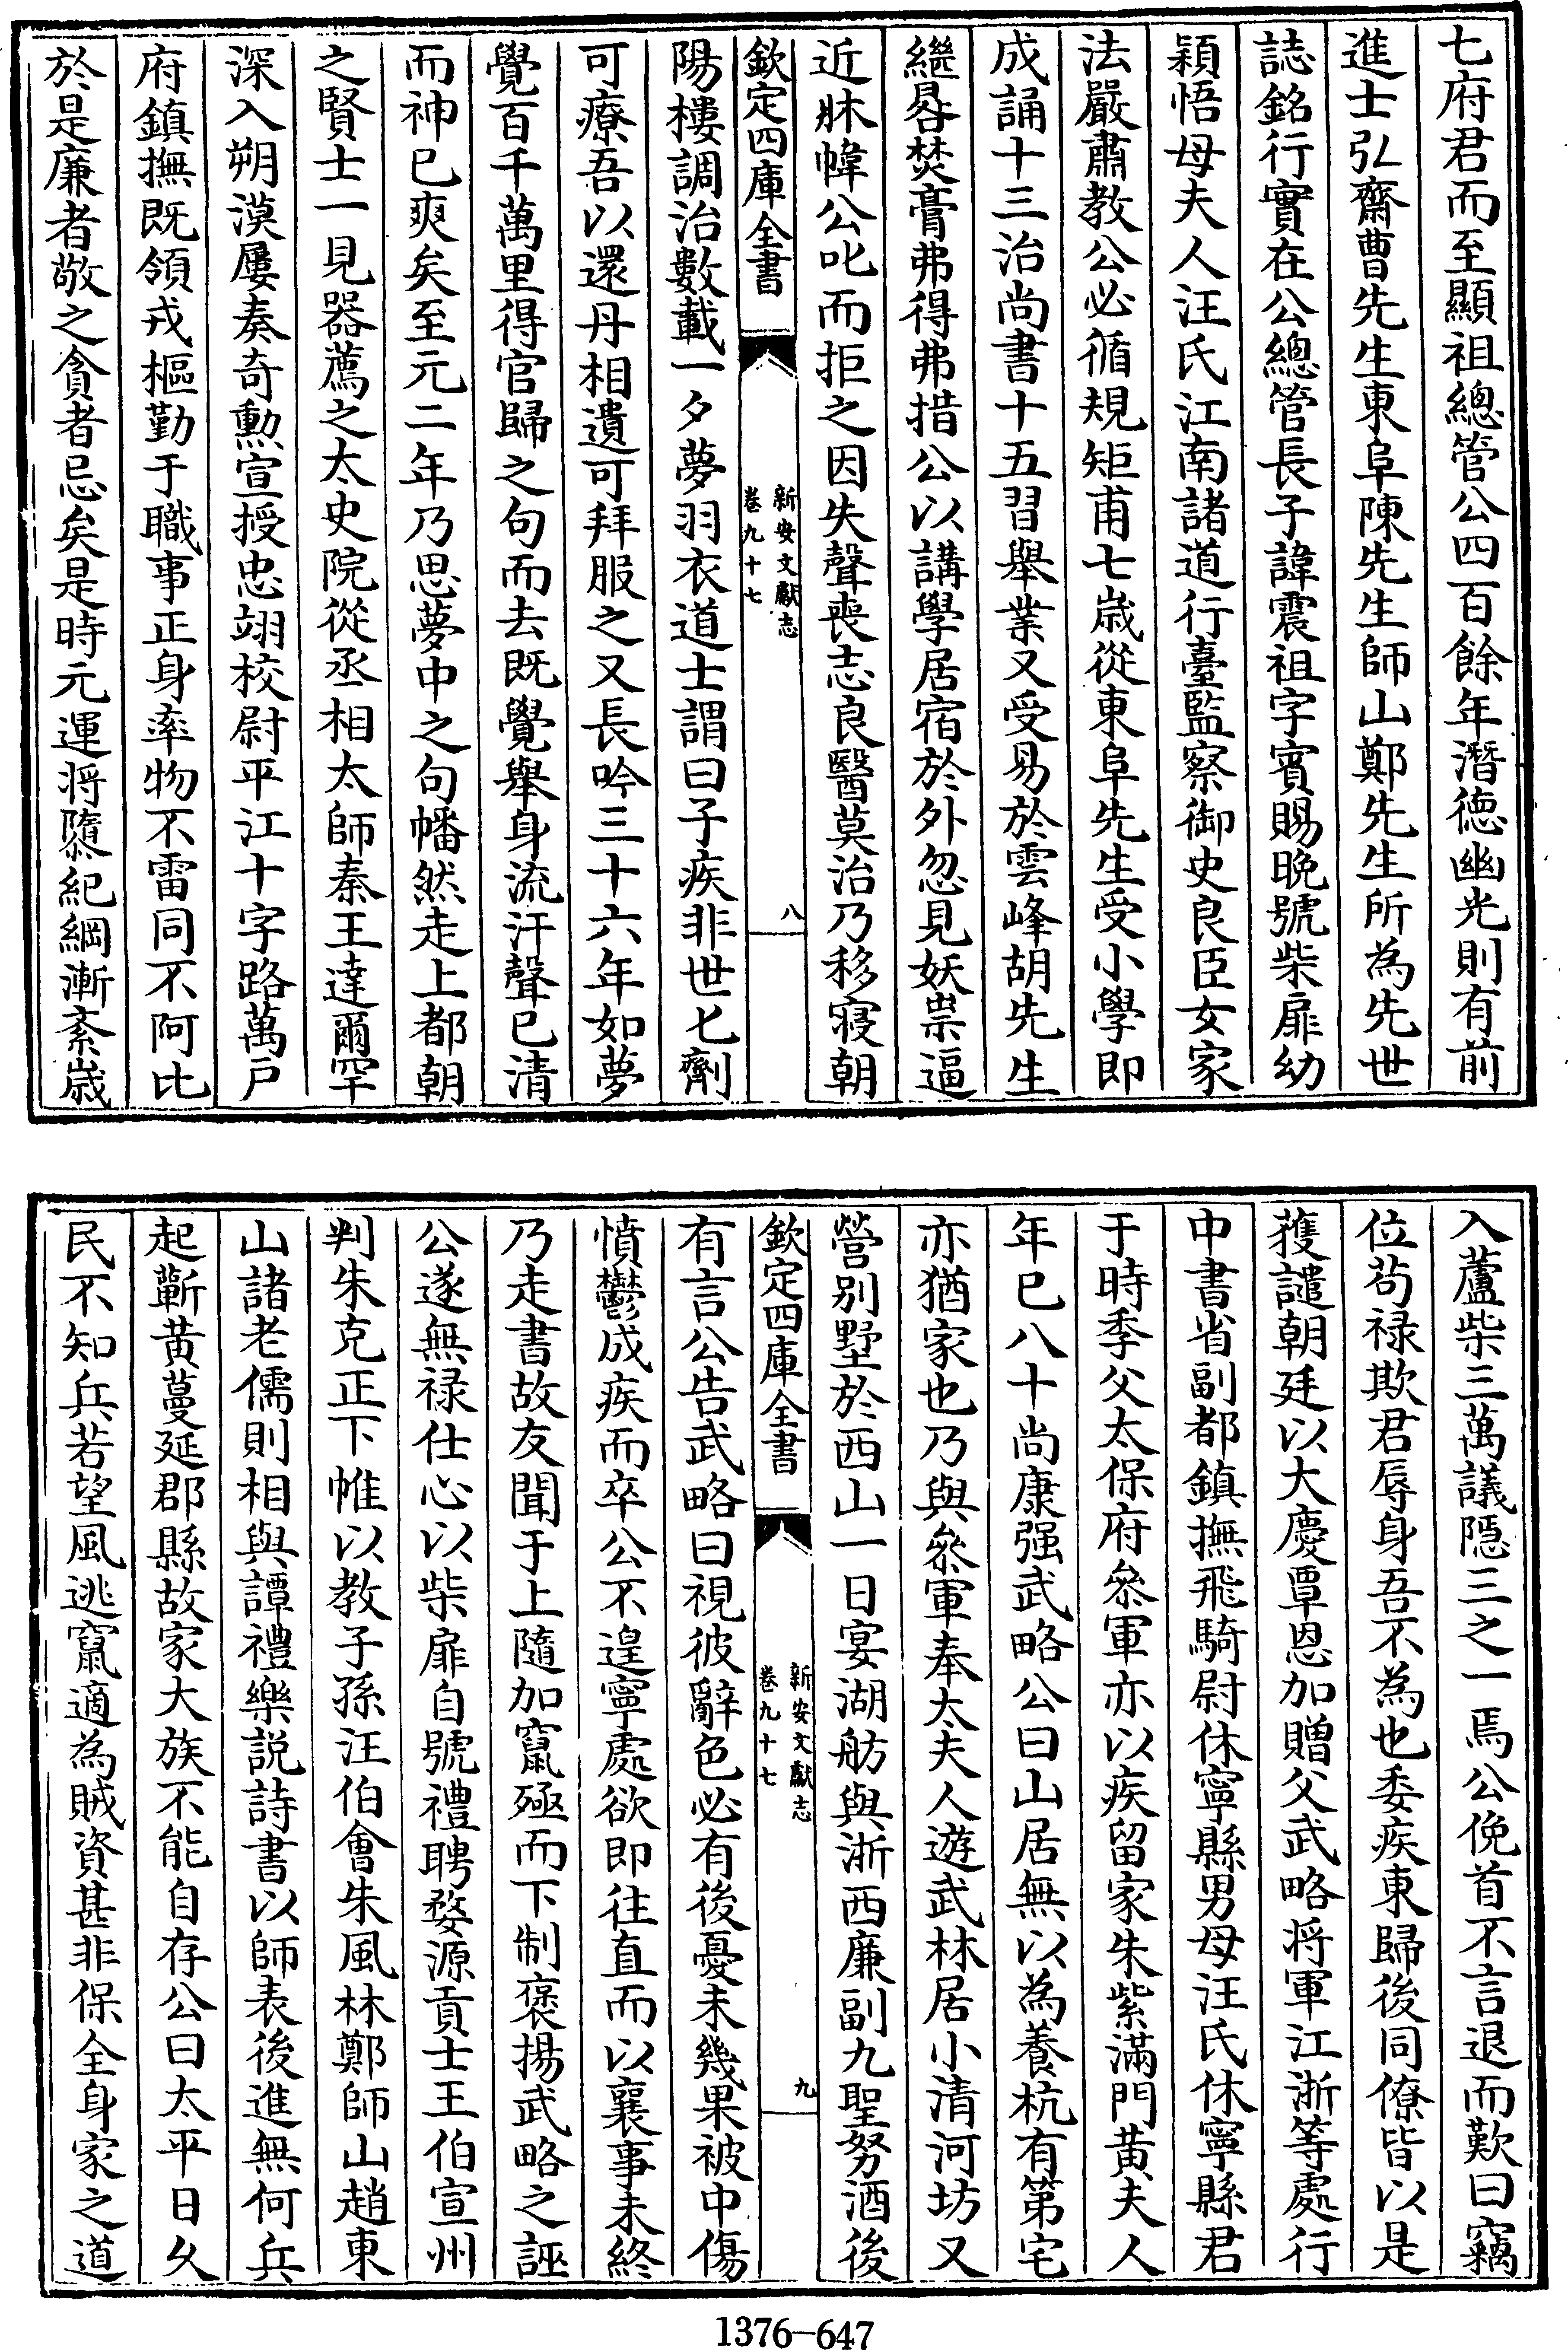 七府君而至顯祖總管公四百餘年潛德幽光則有前
進士弘齋曹先生東阜陳先生師山鄭先生所為先世
誌銘行實在公總管長子諱震祖字賓賜晚號柴扉幼
穎悟母夫人汪氏江南諸道行臺監察御史良臣女家
法嚴肅教公必循規矩甫七歲從東阜先生受小學即
成誦十三治尚書十五習舉業又受易於雲峰胡先生
繼晷焚膏弗得弗措公以講學居宿於外忽見妖祟逼
近牀幃公叱而拒之因失聲喪志良醫莫治乃移寢朝
欽定四庫全書
新安文獻志
卷九十七
八
陽樓調治數載一夕夢羽衣道士謂曰子疾非世匕劑
可療吾以還丹相遺可拜服之又長吟三十六年如夢
覺百千萬里得官歸之句而去既覺舉身流汗聲已清
而神已爽矣至元二年乃思夢中之句幡然走上都朝
之賢士一見器薦之太史院從丞相太師秦王達爾罕
深入朔漠屢奏奇勲宣授忠翊校尉平江十字路萬戸
府鎮撫既領戎樞勤于職事正身率物不雷同不阿比
於是廉者敬之貪者忌矣是時元運将隳紀綱漸紊歲
入蘆柴三萬議隠三之一焉公俛首不言退而歎曰竊
位苟禄欺君辱身吾不為也委疾東歸後同僚皆以是
獲譴朝廷以大慶覃恩加贈父武略将軍江浙等處行
中書省副都鎮撫飛騎尉休寧縣男母汪氏休寧縣君
于時季父太保府叅軍亦以疾留家朱紫滿門黄夫人
年已八十尚康强武略公曰山居無以為養杭有第宅
亦猶家也乃與叅軍奉太夫人遊武林居小清河坊又
營别墅於西山一日宴湖舫與浙西廉副九聖努酒後
欽定四庫全書
新安文獻志
卷九十七
九
有言公告武略曰視彼辭色必有後憂未幾果被中傷
憤鬱成疾而卒公不遑寧處欲即往直而以襄事未終
乃走書故友聞于上隨加竄殛而下制褒揚武略之誣
公遂無禄仕心以柴扉自號禮聘婺源貢士王伯宣州
判朱克正下帷以教子孫汪伯會朱風林鄭師山趙東
山諸老儒則相與譚禮樂説詩書以師表後進無何兵
起蘄黄蔓延郡縣故家大族不能自存公曰太平日久
民不知兵若望風逃竄適為賊資甚非保全身家之道
1376—647